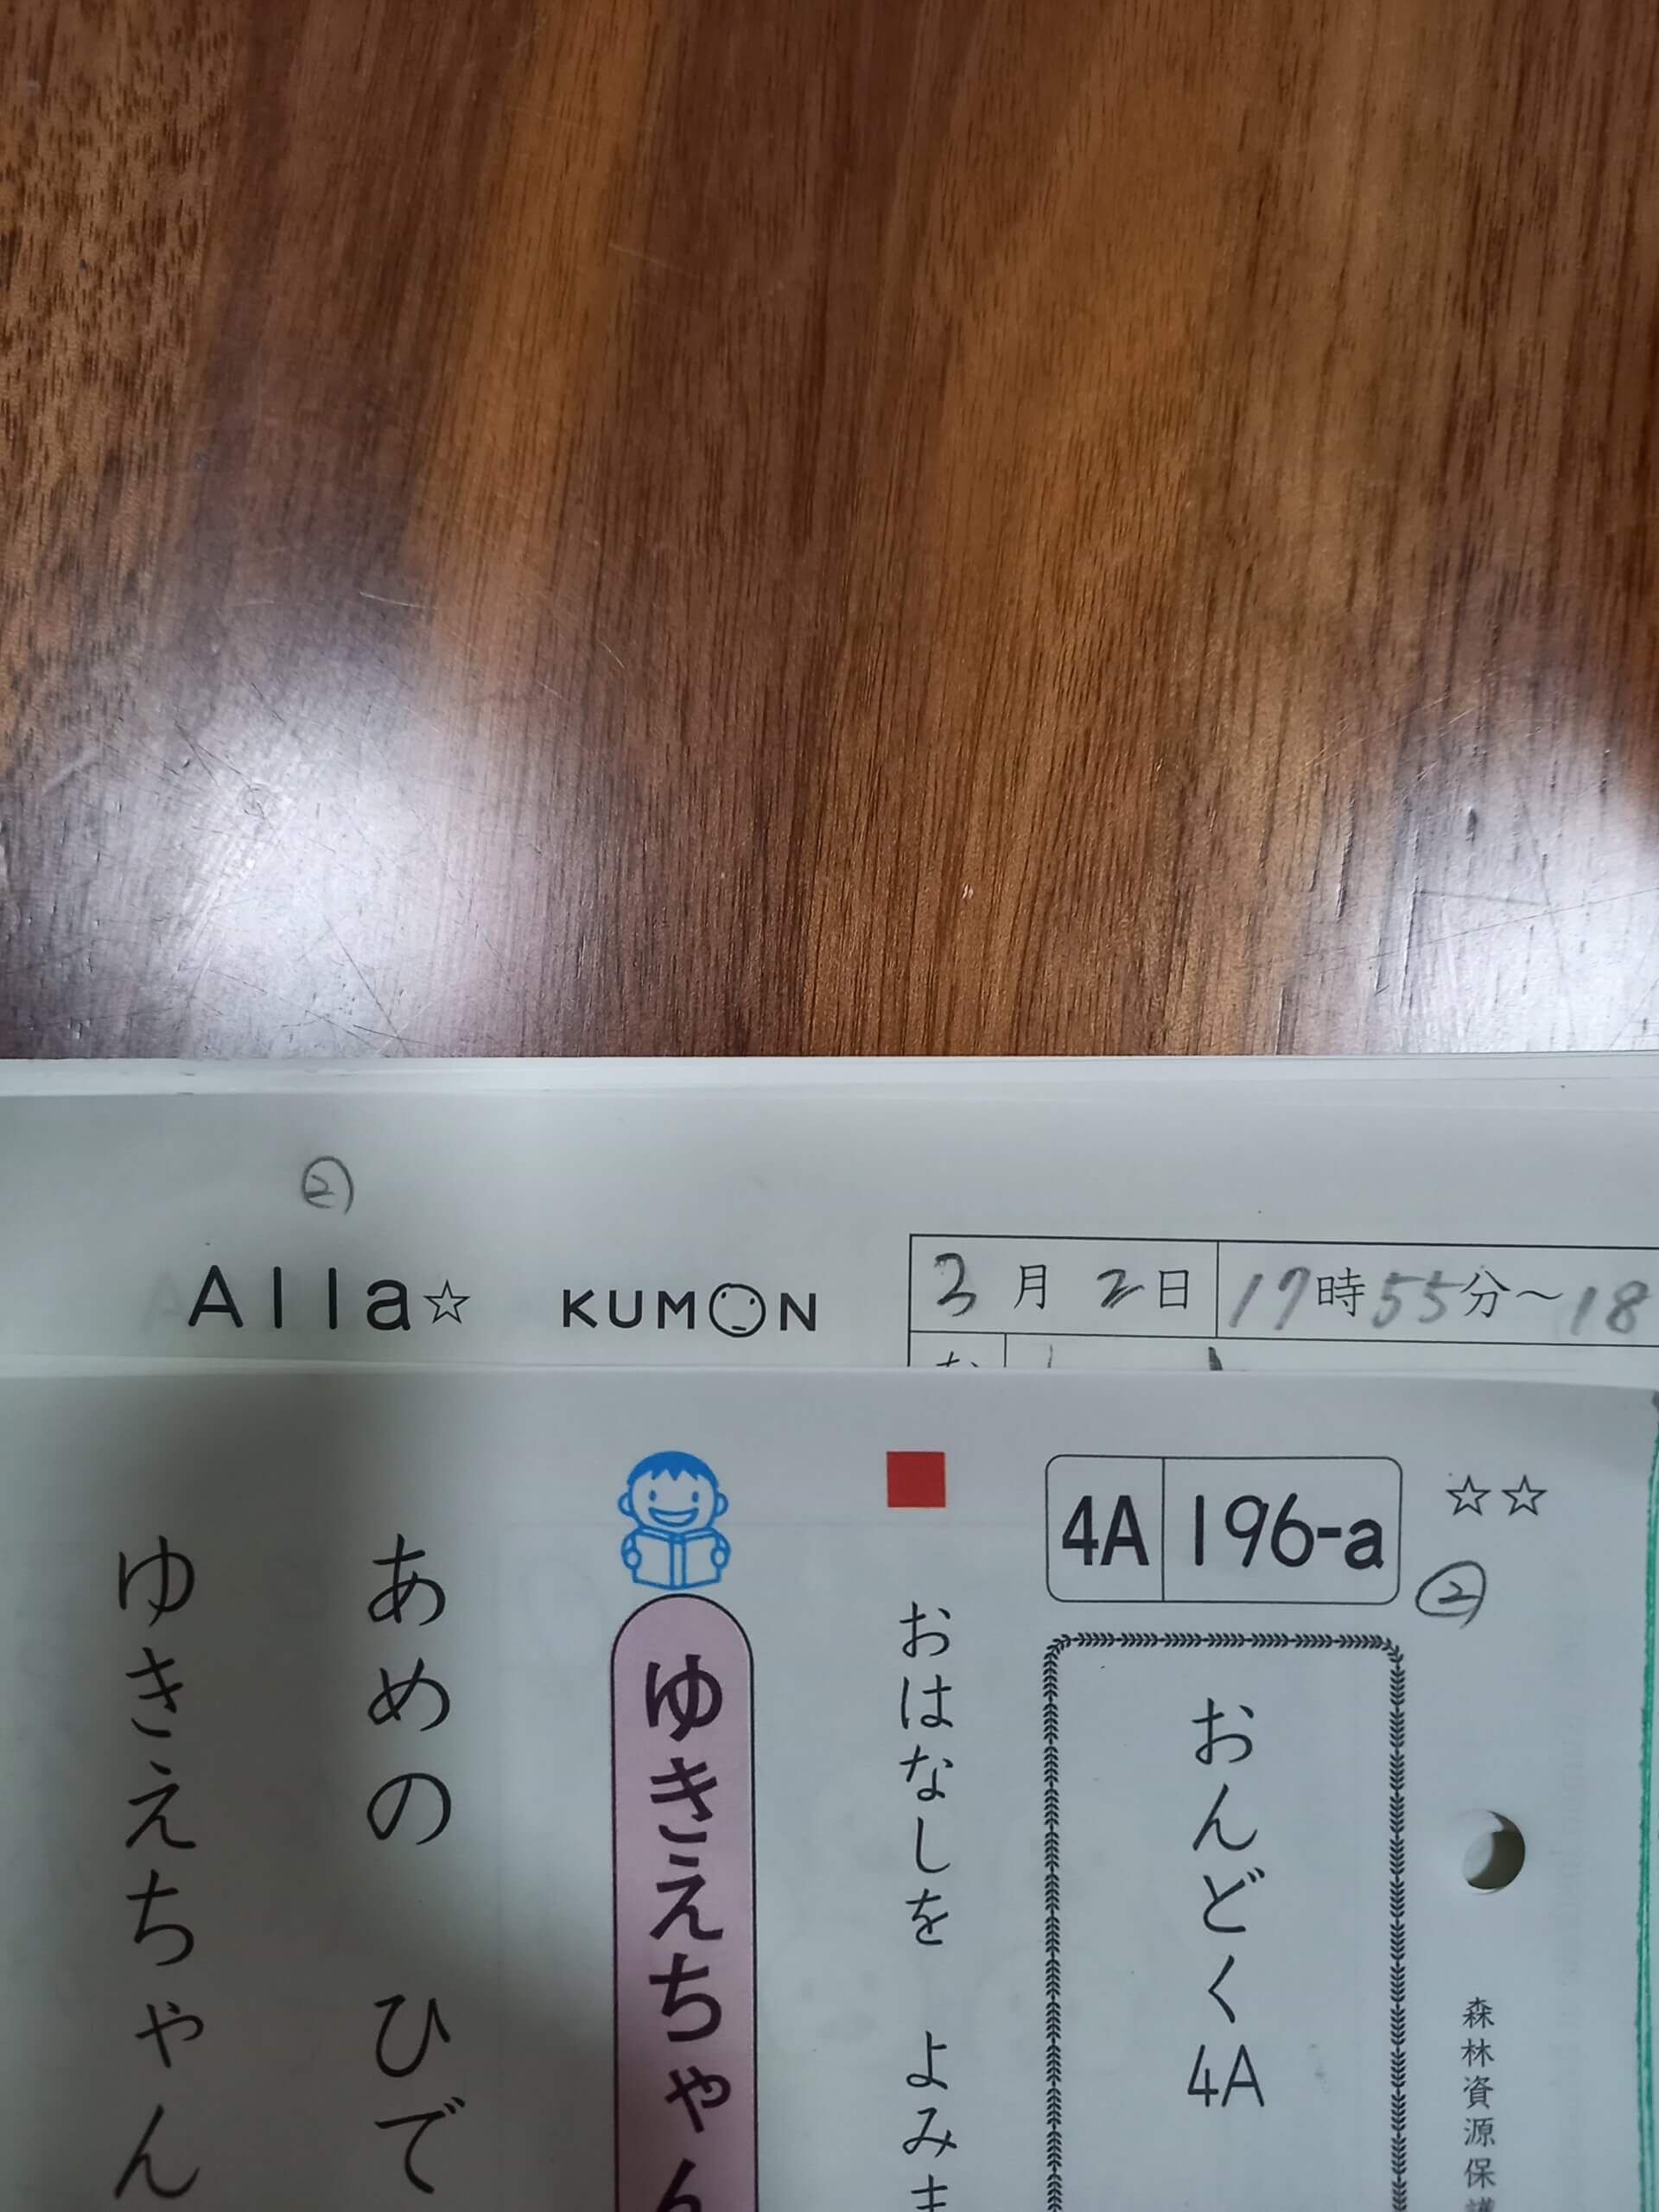 ②
A11a☆ KUMON 3月2日 17時55分～18
4A 196-a ☆☆
②
おんどく4A
おはなしを よみま
ゆきえちゃん
あめの ひで
ゆきえちゃん
森林資源保護